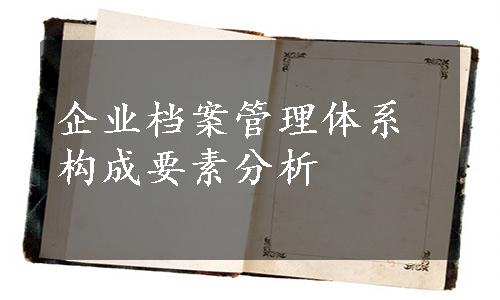 企业档案管理体系
构成要素分析